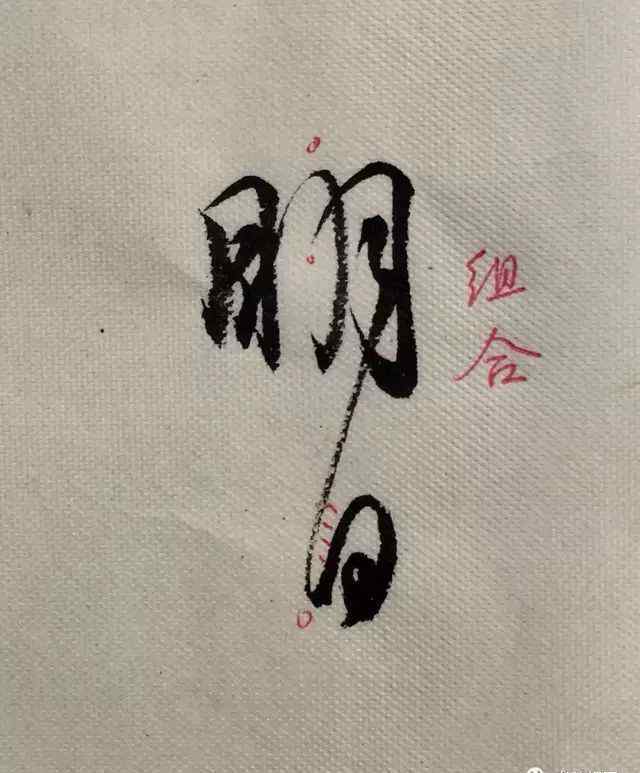 明日
组合